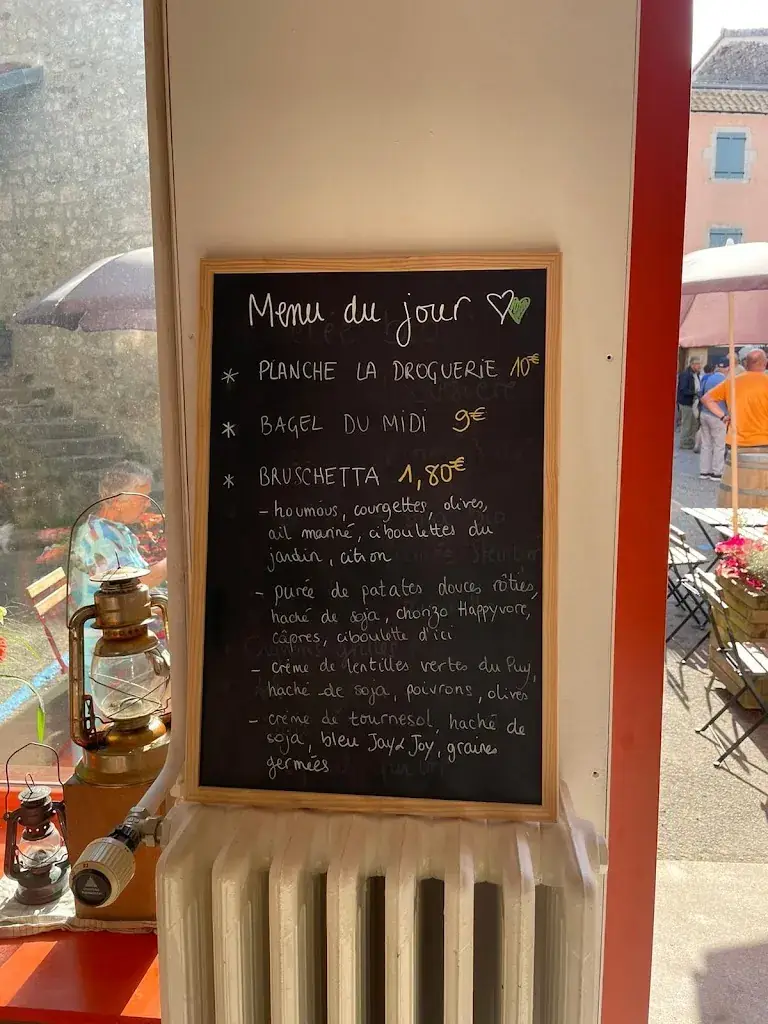 Menu du jour
* PLANCHE LA DROGUERIE 10€
* BAGEL DU MIDI 9€
* BRUSCHETTA 1,80€
- houmous, courgettes, olives,
ail mariné, ciboulettes du
jardin, citron
- purée de patates douces rôties,
haché de soja, chorizo Happyvore,
câpres, ciboulette d'ici
- crème de lentilles vertes du Puy,
haché de soja, poivrons, olives
- crème de tournesol, haché de
soja, bleu Jay & Joy, graines
germées